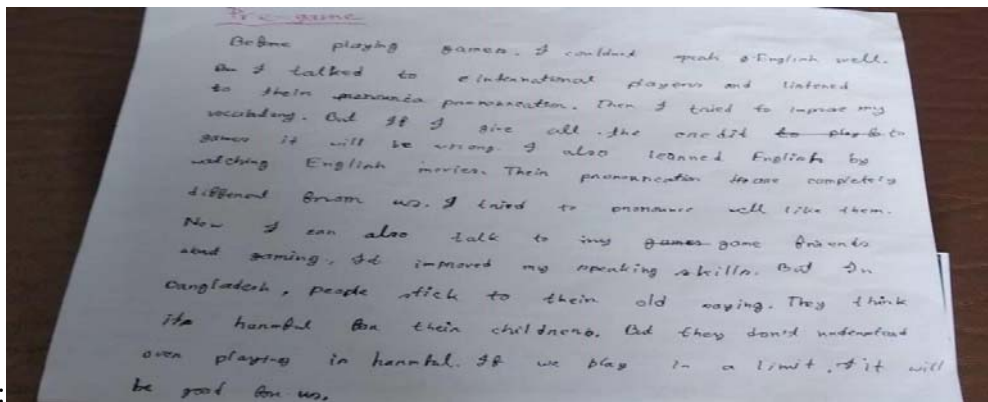 Pre-game
Before playing games. I couldn't speak English well.
But I talked to international players and listened
to their pronounciation. Then I tried to improve my
vocabulary. But If I give all the credit to
games it will be wrong. I also learned English by
watching English movies. Their pronounciation are completely
different from us. I tried to pronounce well like them.
Now I can also talk to my game friends
about gaming. It improved my speaking skills. But In
Bangladesh, people stick to their old saying. They think
its harmful for their childrens. But they don't understand
over playing is harmful. If we play in a limit, it will
be good for us.